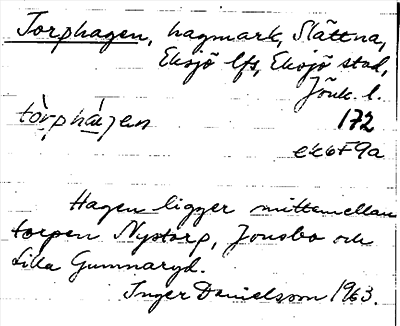 Torphagen, hagmark, Slättna,
Eksjö lfs, Eksjö stad,
Jönk. l.
tòrphá̱gen 172
ek6F9a
Hagen ligger mittemellan
torpen Nystorp, Jonsbo och
Lilla Gummaryd.
Inger Danielsson 1963.